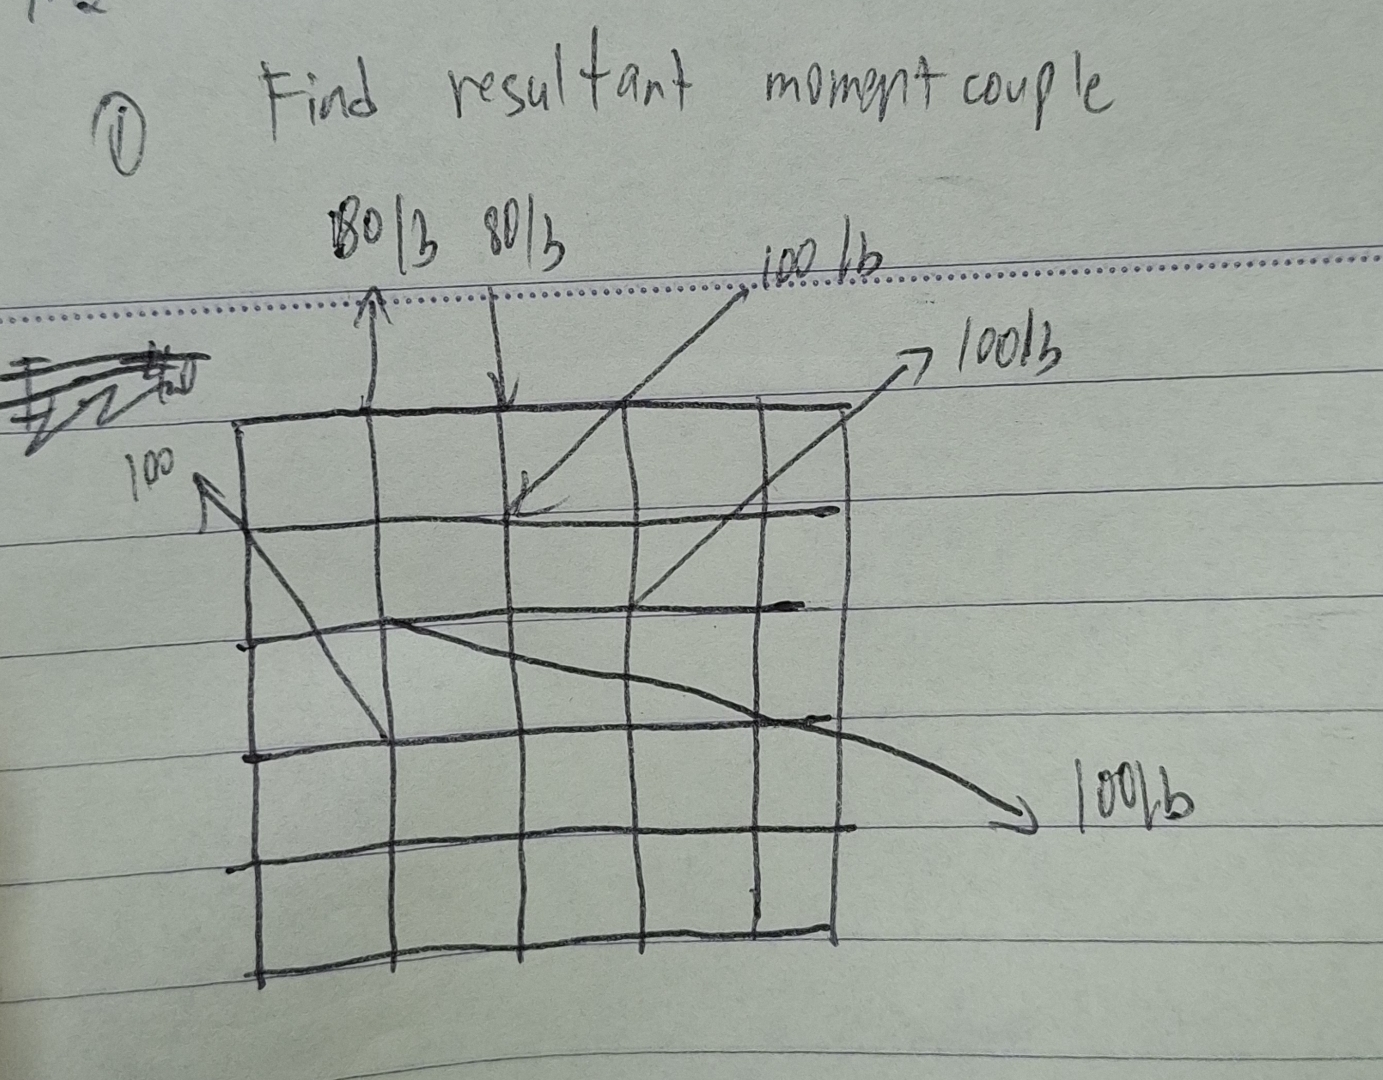 ① Find resultant moment couple
80lb 80lb 100 lb
100lb
100
100lb